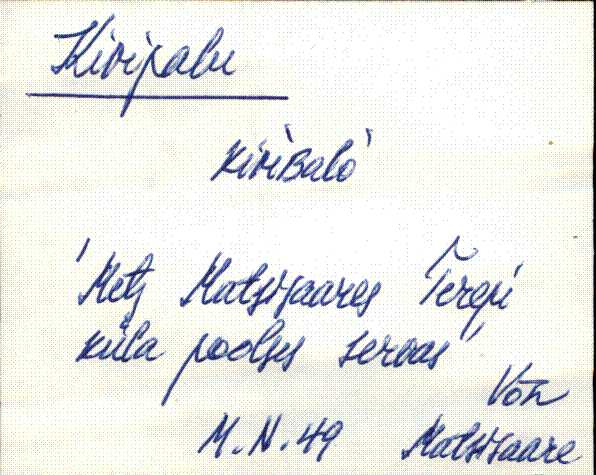 Kivipalu
kivìʙalo'
'Mets Matsisaares Terepi
küla poolses servas'
Võn
M.N.49 Matsisaare